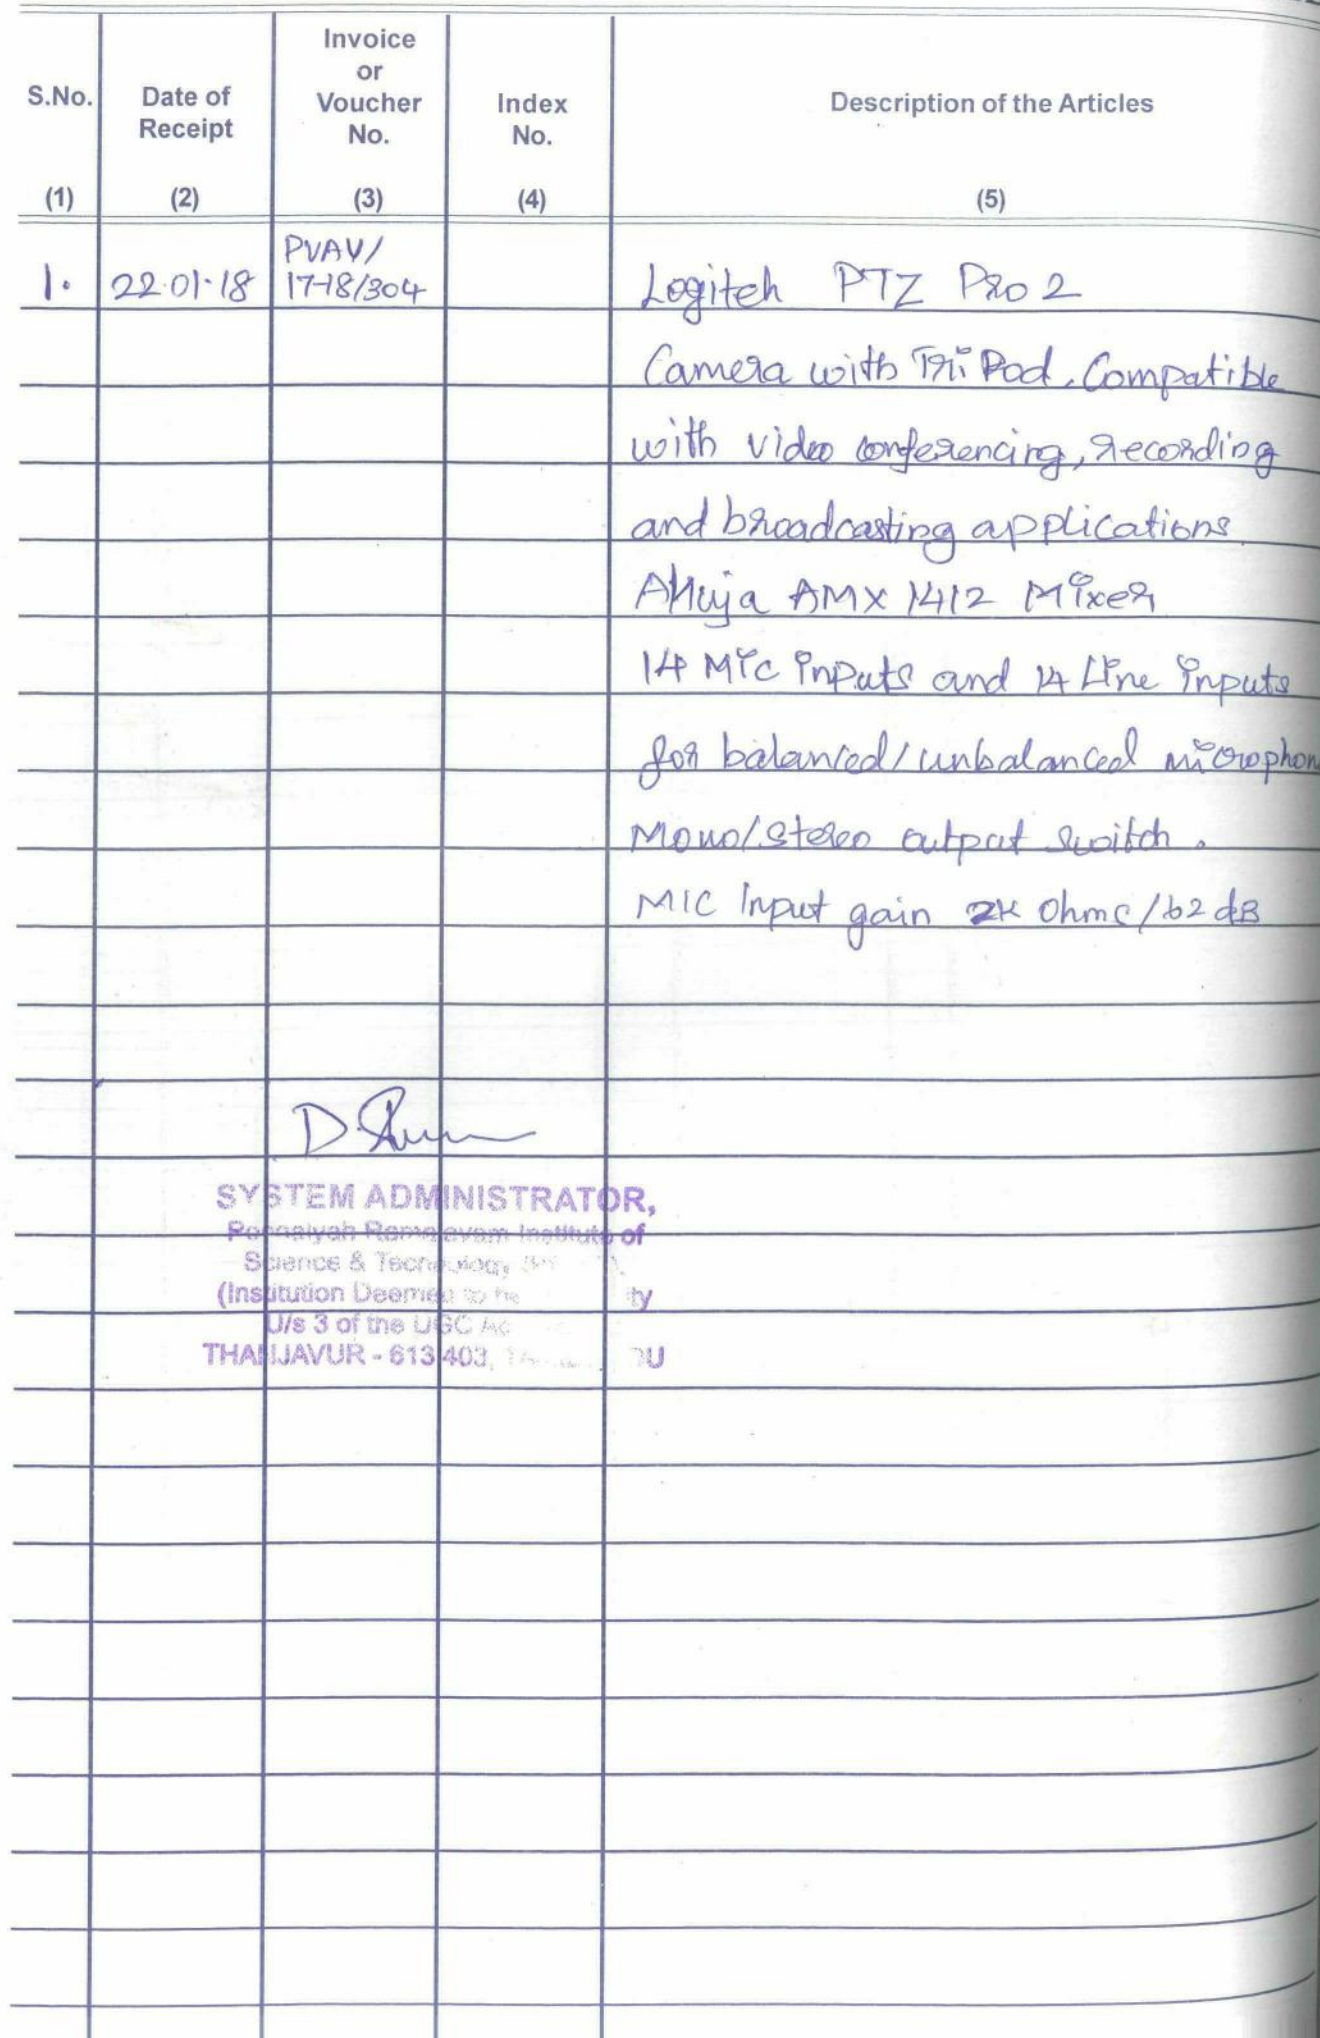 S.No.
Date of
Receipt
Invoice
or
Voucher
No.
Index
No.
Description of the Articles
(1) (2) (3) (4) (5)
1. 22.01.18 PVAV/
17-18/304
Logiteh PTZ Pro 2
Camera with Tri Pod, Compatible
with video conferencing, recording
and broadcasting applications
Ahuja AMX 1412 Mixer
14 Mic inputs and 14 Line inputs
for balanced/unbalanced microphon
Mono/stereo output switch.
MIC Input gain 2K Ohms/62 dB
SYSTEM ADMINISTRATOR,
Ponnaiyah Ramajayam Institute of
Science & Technology
(Institution Deemed to be
U/s 3 of the UGC Ac
THANJAVUR - 613 403,